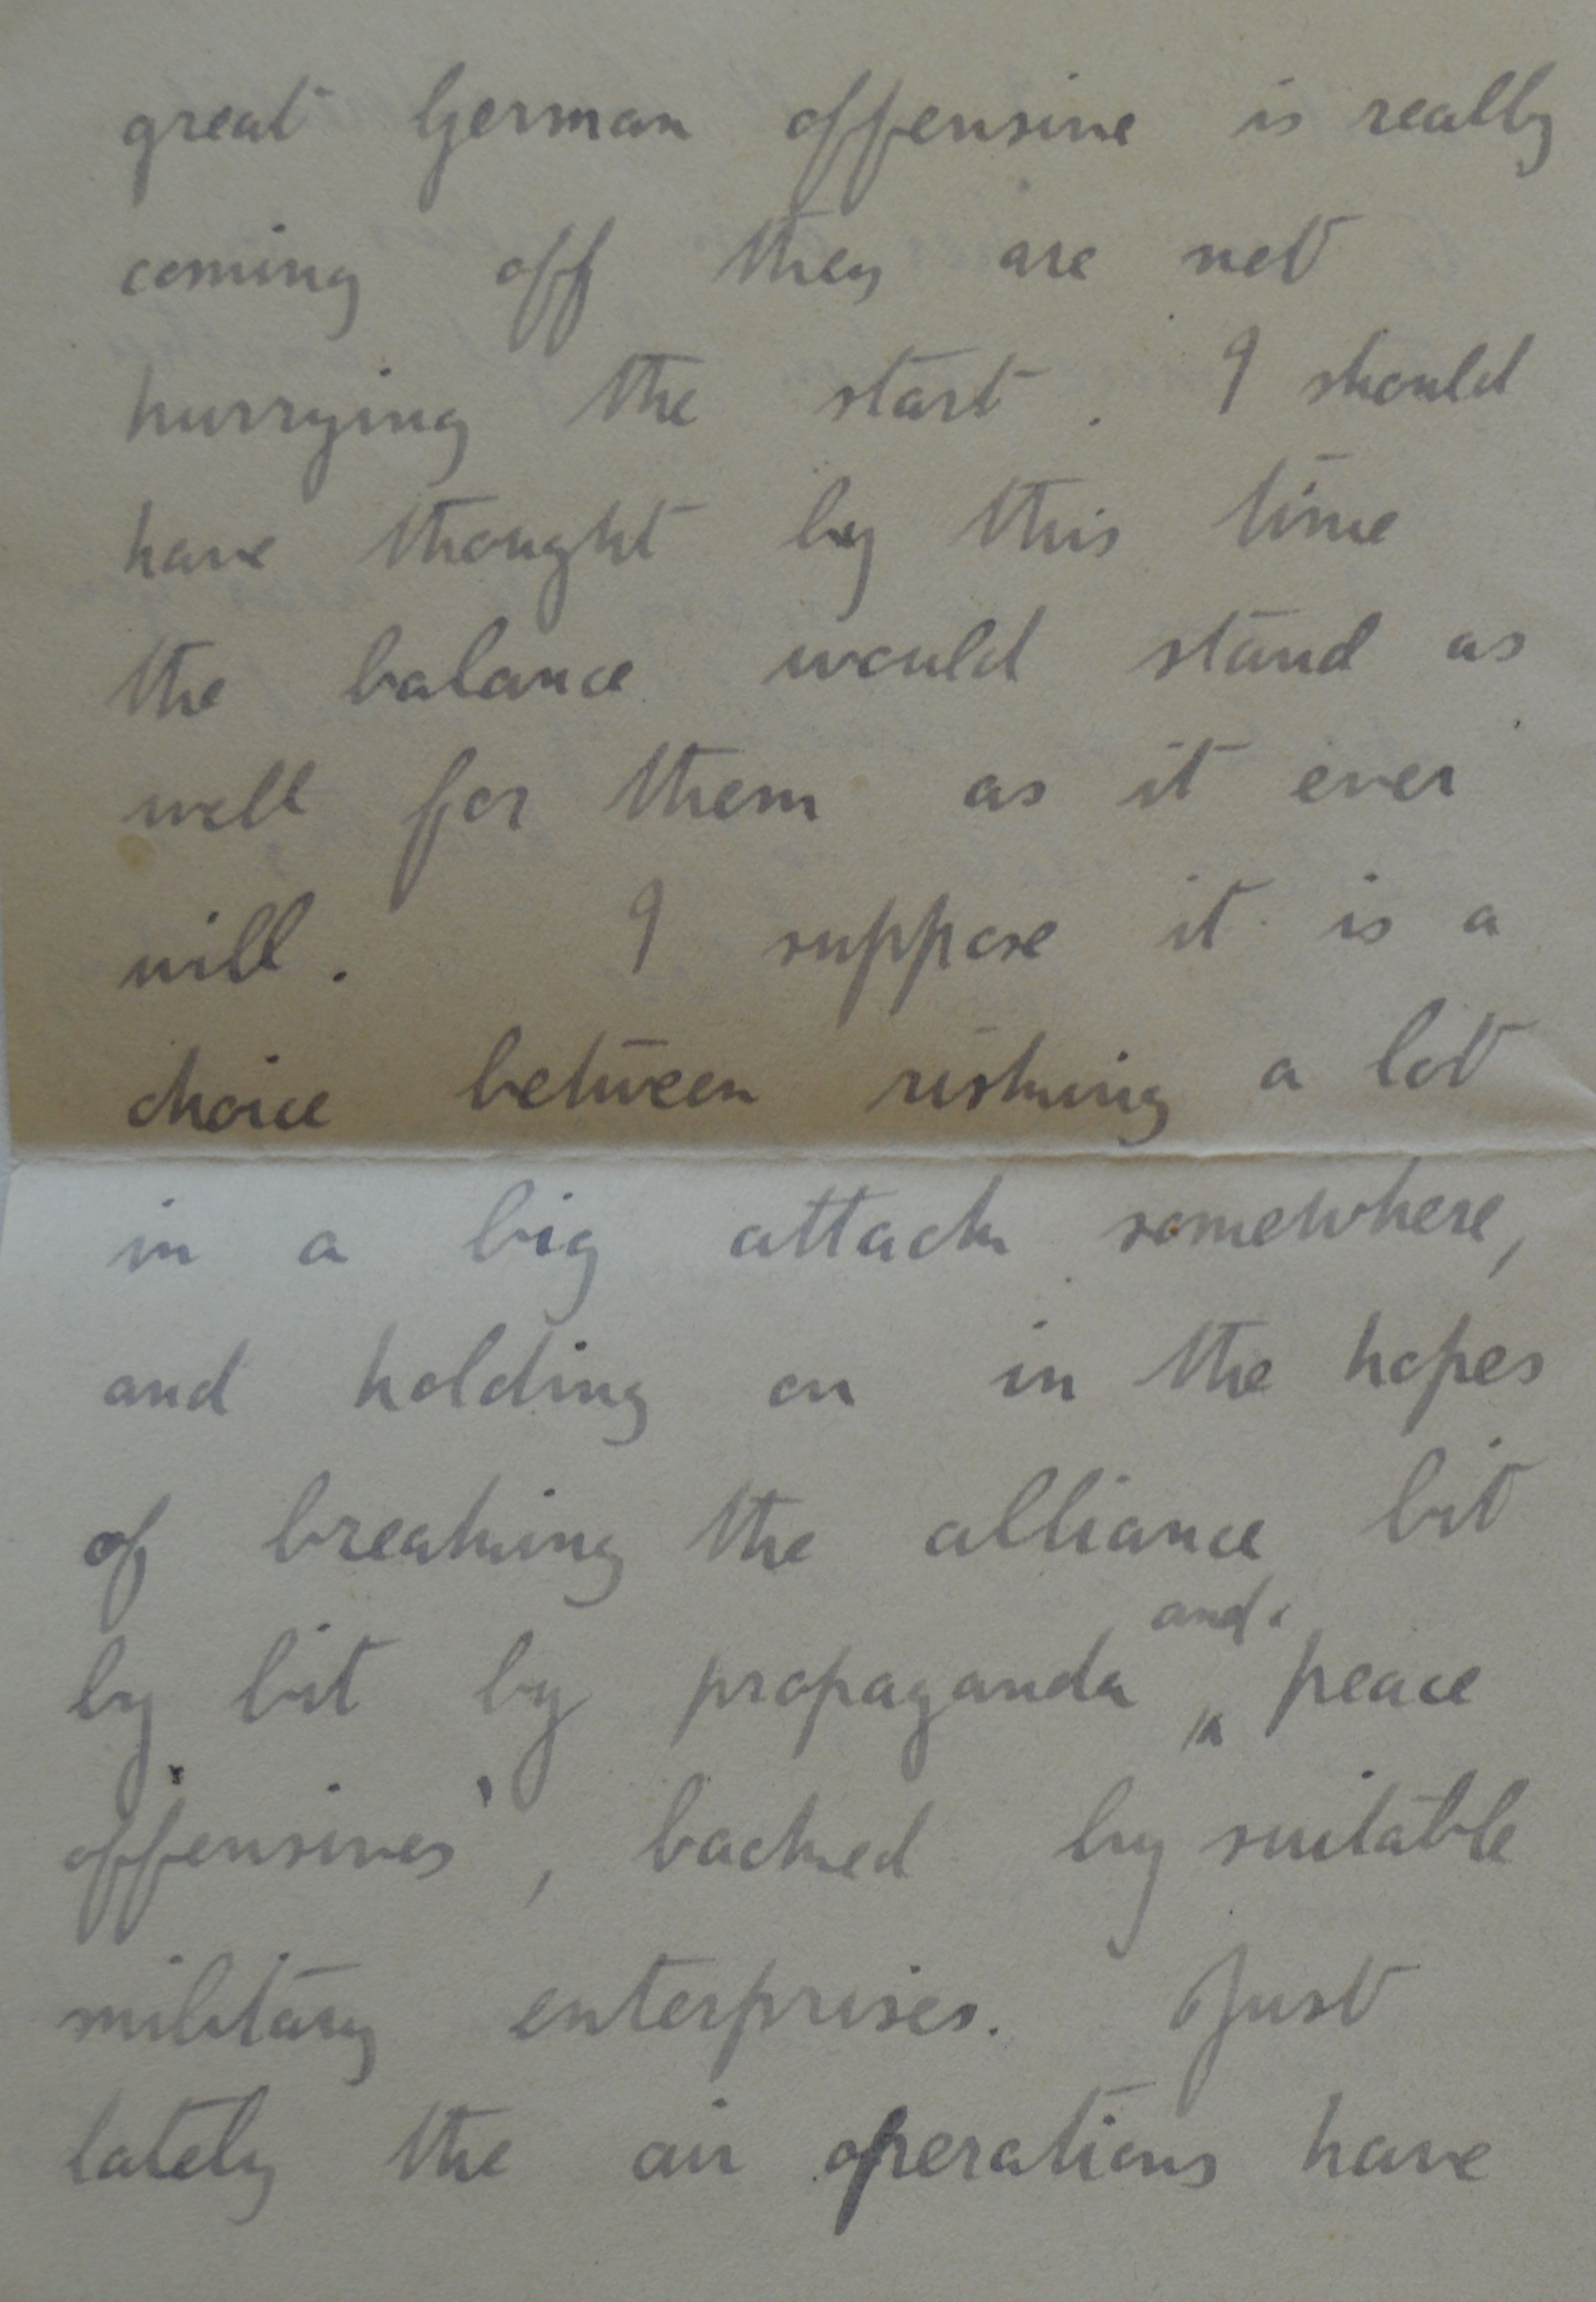 great German offensive is really
coming off they are not
hurrying the start. I should
have thought by this time
the balance would stand as
well for them as it ever
will. I suppose it is a
choice between risking a lot
in a big attack somewhere,
and holding on in the hopes
of breaking the alliance bit
by bit by propaganda and 'peace
offensives', backed by suitable
military enterprises. Just
lately the air operations have